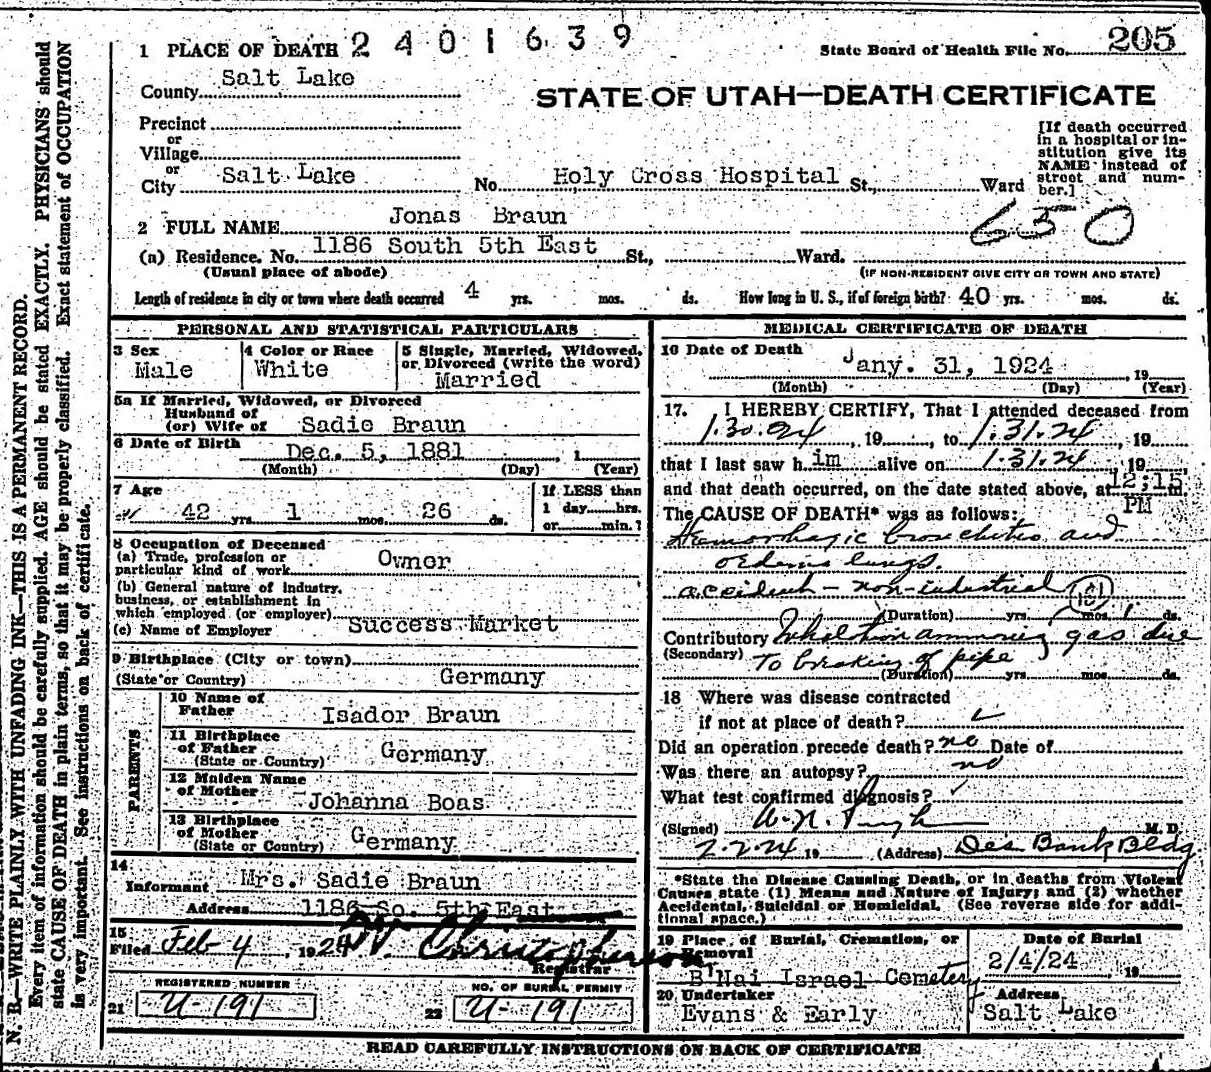 1 PLACE OF DEATH 2401639
State Board of Health File No. 205
County Salt Lake
STATE OF UTAH—DEATH CERTIFICATE
Precinct
or
Village
or
City Salt Lake No. Holy Cross Hospital St., Ward
[If death occurred
in a hospital or in-
stitution give its
NAME instead of
street and num-
ber.]
2 FULL NAME Jonas Braun
650
(a) Residence. No. 1186 South 5th East St., Ward.
(Usual place of abode) (IF NON-RESIDENT GIVE CITY OR TOWN AND STATE)
Length of residence in city or town where death occurred 4 yrs. mos. ds. How long in U. S., if of foreign birth? 40 yrs. mos. ds.
PERSONAL AND STATISTICAL PARTICULARS
3 Sex
Male
4 Color or Race
White
5 Single, Married, Widowed,
or Divorced (write the word)
Married
5a If Married, Widowed, or Divorced
Husband of
(or) Wife of Sadie Braun
6 Date of Birth Dec. 5, 1881 , 1
(Month) (Day) (Year)
7 Age
42 yrs. 1 mos. 26 ds.
If LESS than
1 day hrs.
or min.?
8 Occupation of Deceased
(a) Trade, profession or
particular kind of work Owner
(b) General nature of industry,
business, or establishment in
which employed (or employer)
(c) Name of Employer Success Market
9 Birthplace (City or town)
(State or Country) Germany
PARENTS
10 Name of
Father Isador Braun
11 Birthplace
of Father
(State or Country) Germany
12 Maiden Name
of Mother Johanna Boas
13 Birthplace
of Mother
(State or Country) Germany
14
Informant Mrs. Sadie Braun
Address 1186 So. 5th East
15
Filed Feb 4, 1924 Christopherson
Registrar
REGISTERED NUMBER
21 U-191
NO. OF BURIAL PERMIT
22 U-191
MEDICAL CERTIFICATE OF DEATH
16 Date of Death Jany. 31, 1924 , 19
(Month) (Day) (Year)
17. I HEREBY CERTIFY, That I attended deceased from
1.30.24, 19 , to 1.31.24, 19
that I last saw him alive on 1.31.24 19
and that death occurred, on the date stated above, at 12:15 m.
PM
The CAUSE OF DEATH* was as follows:
Hemorrhagic bronchitis and
oedema lungs.
accident - non-industrial 181
(Duration) yrs. mos. 1 ds.
Contributory Inhalation ammonia gas due
(Secondary) to breaking of pipe
(Duration) yrs. mos. ds.
18 Where was disease contracted
if not at place of death?
Did an operation precede death? no Date of
Was there an autopsy? no
What test confirmed diagnosis?
(Signed) M. D.
2.2.24 19 (Address) Des. Bank Bldg
*State the Disease Causing Death, or in deaths from Violent
Causes state (1) Means and Nature of Injury; and (2) whether
Accidental, Suicidal or Homicidal. (See reverse side for addi-
tional space.)
19 Place of Burial, Cremation, or
Removal
B'Nai Israel Cemetery
Date of Burial
2/4/24 , 19
20 Undertaker
Evans & Early
Address
Salt Lake
READ CAREFULLY INSTRUCTIONS ON BACK OF CERTIFICATE
N. B.—WRITE PLAINLY WITH UNFADING INK—THIS IS A PERMANENT RECORD.
Every item of information should be carefully supplied. AGE should be stated EXACTLY. PHYSICIANS should
state CAUSE OF DEATH in plain terms, so that it may be properly classified. Exact statement of OCCUPATION
is very important. See instructions on back of certificate.